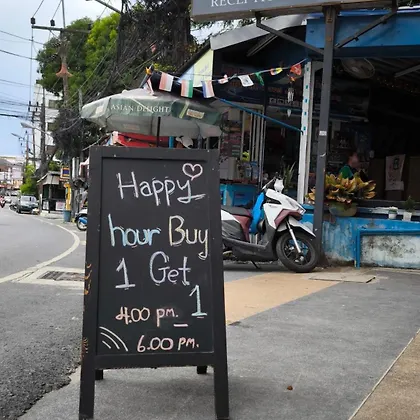 RECEPT
ASIAN DELIGHT
Happy
hour Buy
1 Get 1
4.00 pm. _
6.00 pm.